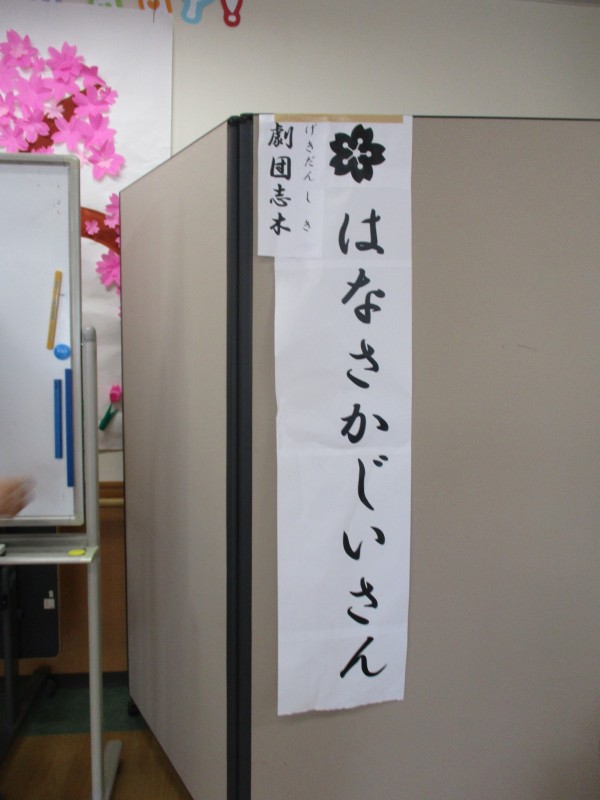 はなさかじいさん
げきだんしき
劇団志木